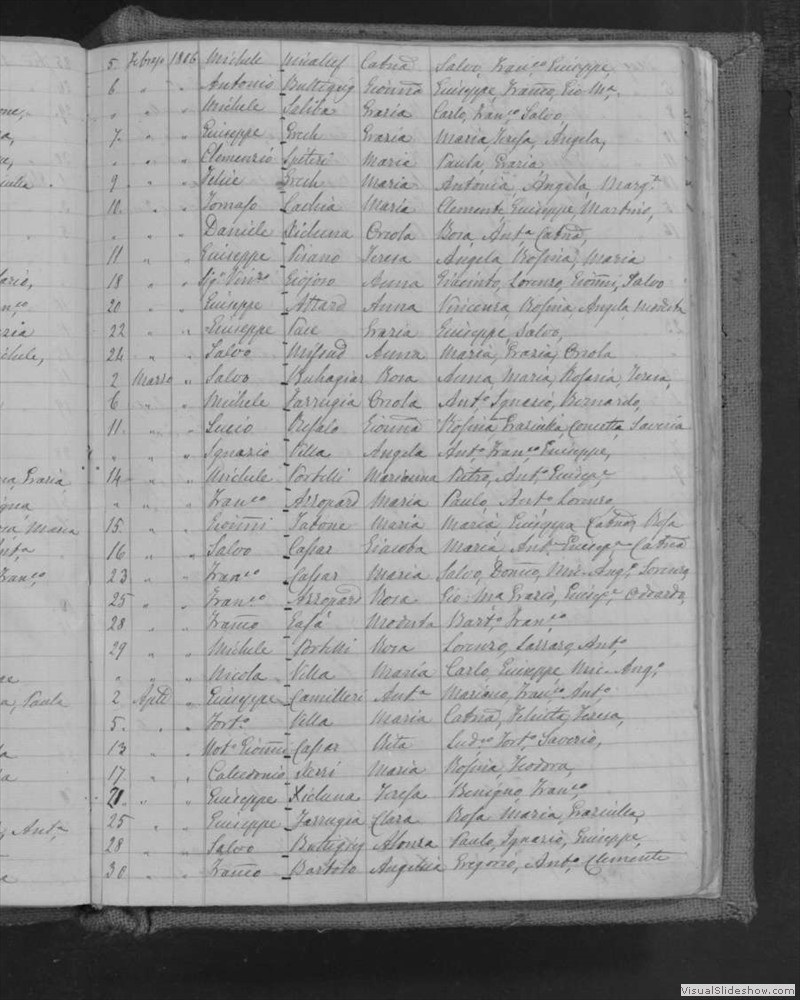 5. Febrajo 1806 Michele Micallef Catna Salvo, Franco Giuseppe,
6 " " Antonio Buttigieg Gionna Giuseppe, Franco, Gio Ma.
" " " Michele Saliba Grazia Carlo, Franco Salvo,
7. " " Giuseppe Grech Grazia Maria Teresa, Angela,
" " " Clemenzio Spiteri Maria Paula, Grazia
9 " " Felice Grech Maria Antonia, Angela, Marga
10. " " Tomaso Cachia Maria Clemente, Giuseppe, Martino,
" " " Daniele Xicluna Orsola Rosa, Anta Catna,
11 " " Giuseppe Pisano Teresa Angela, Rosina, Maria
18 " " Anna Giacinto, Lorenzo, Gionni, Salvo
20 " " Giuseppe Attard Anna Vincenza, Rosina, Angela, Modesta
22 " " Giuseppe Pace Grazia Giuseppe, Salvo,
24 " " Salvo Mifsud Anna Maria, Grazia, Orsola
2 Marzo " Salvo Buhagiar Rosa Anna, Maria, Rosaria, Teresa,
6 " " Michele Farrugia Orsola Anto Ignazio, Bernardo,
11. " " Lucio Gionna Rosina, Graziulla, Concetta, Saveria
" " " Ignazio Villa Angela Anto Franco Giuseppe,
14 " " Michele Portelli Marianna Pietro, Anto Giusepe
" " " Franco Azzopard Maria Paulo, Anto Lorenzo
15. " " Gionni Tabone Maria Maria, Giuseppa, Catna, Rosa
16 " " Salvo Cassar Giacoba Maria Anta Giusepa Catna
23 " " Franco Cassar Maria Salvo, Domco, Mic. Ango Lorenzo
25 " " Franco Azzopard Rosa Gio Ma Grazio, Giusepe Odoardo,
28 " " Franco Zafà Modesta Barto, Franco
29 " " Michele Portelli Rosa Lorenzo, Lazzaro, Anto
" " " Nicola Villa Maria Carlo, Giuseppe Mic. Ango
2 Aple " Giuseppe Camilleri Anta Mariano, Franco Anto
5. " " Forto Villa Maria Catna, Felicitta, Teresa,
13 " " Noto Gionni Cassar Vita Ludco Forto Saverio,
17. " " Calcedonio Xerri Maria Rosina, Teodora,
21 " " Giuseppe Xicluna Teresa Benigno Franco
25 " " Giuseppe Farrugia Clara Rosa, Maria Graziulla
28 " " Salvo Buttigieg Alonza Paulo, Ignazio, Giuseppe,
30 " " Franco Bartolo Gregorio, Anto Clemente
VisualSlideshow.com